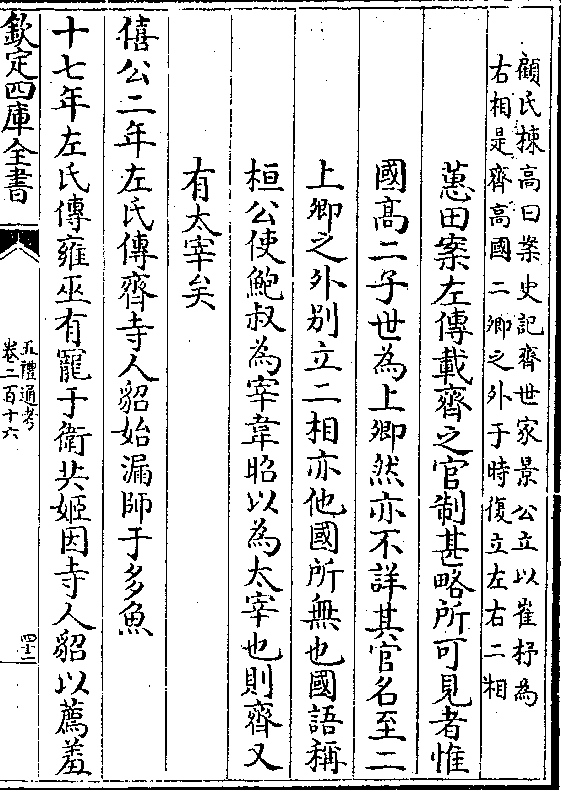 顧氏揀高曰案史記齊世家景公立以崔杼為
右相是齊高國二卿之外于時復立左右二相
蕙田案左傳載齊之官制甚略所可見者惟
國髙二子世為上卿然亦不詳其官名至二
上卿之外别立二相亦他國所無也國語稱
桓公使鮑叔為宰韋昭以為太宰也則齊又
有太宰矣
僖公二年左氏傳齊寺人貂始漏師于多魚
十七年左氏傳雍巫有寵于衛共姬因寺人貂以薦羞
欽定四庫全書
五禮通考
卷二百十六
四十二